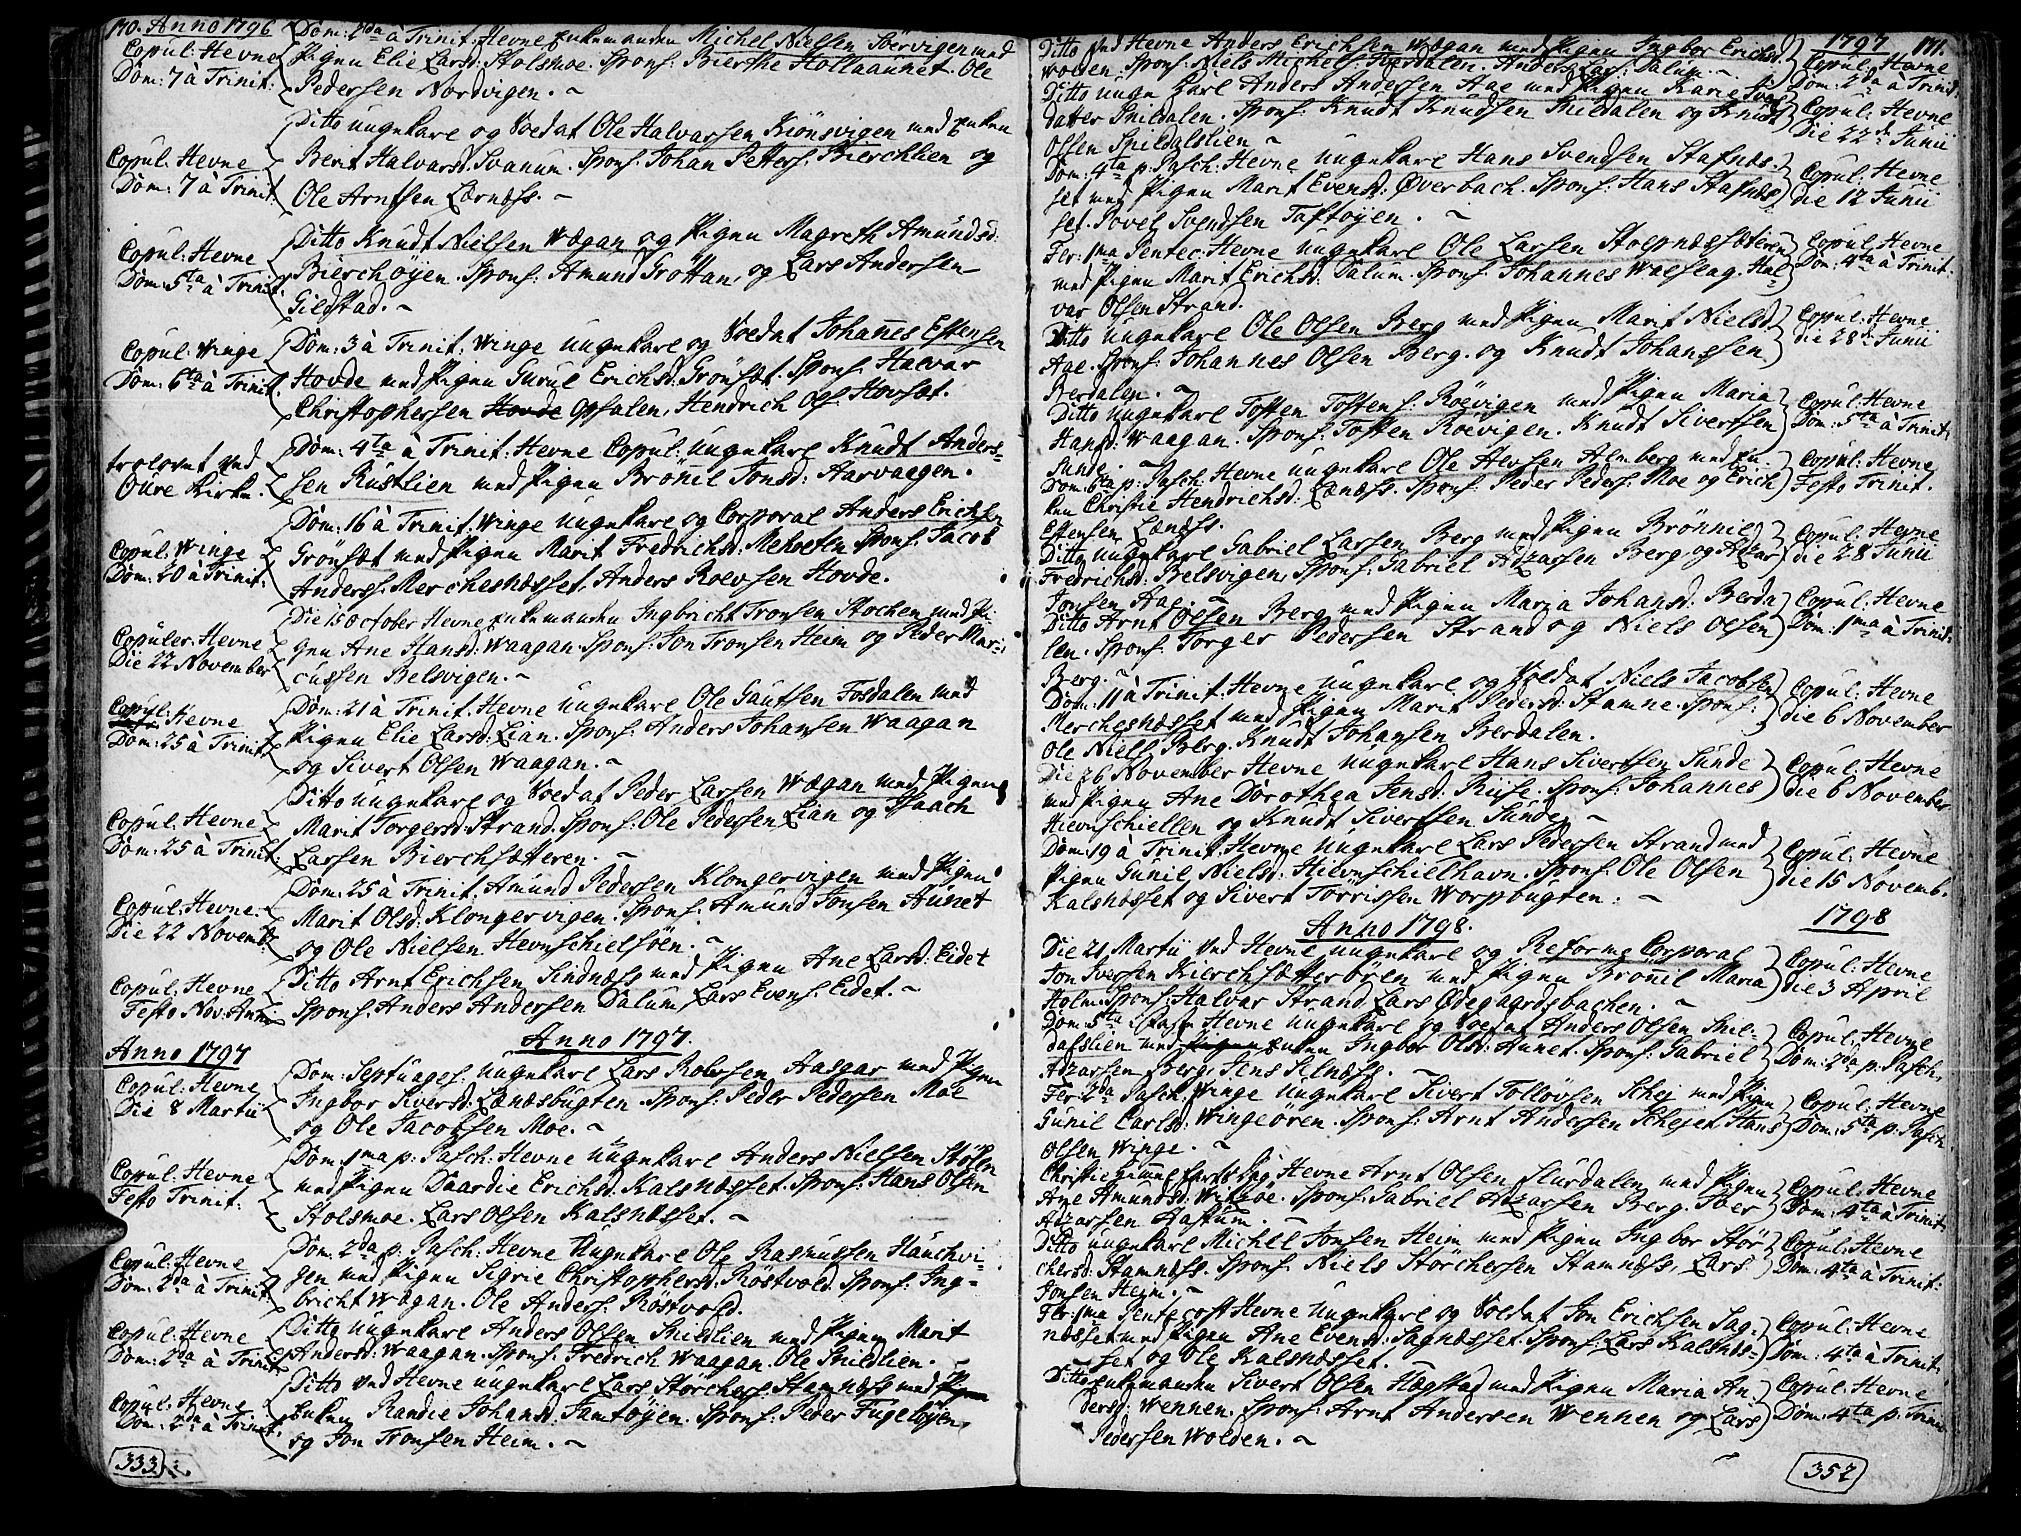 170. Anno 1796
Copul: Hevne
Dom: 7 à Trinit:
Dom: 2da à Trinit: Hevne Enkemanden Michel Nielsen Soervigen med
Pigen Elie Larsd: Stolsmoe. Spons: Bierthe Hollaaunet. Ole
Pedersen Nordvigen. ~
Copul: Hevne
Dom: 7 à Trinit:
Ditto ungekarl og Soldat Ole Halvarsen Kiönsvigen med Enken
Berit Halvarsd: Svanum. Spons: Johan Petters: Bierchlien og
Ole Arntsen Lernæss. ~
Copul: Hevne
Dom: 5ta à Trinit:
Ditto Knudt Nielsen Wægan og Pigen Magreth Amundsd:
Bierchöyen. Spons: Amund Grottan, og Lars Andersen
Gildstad. ~
Copul: Winge
Dom: 6ta à Trinit:
Dom: 3 à Trinit: Winge ungekarl og Soldat Johannes Estensen
Hovde med Pigen Gurul Erichsd: Grönsæt. Spons: Halvar
Christophersen Hovde Opsalen, Hendrich Ols: Hovsæt.
trolovet ved
Oure Kirke.
Dom: 4ta à Trinit: Hevne Copul: ungekarl Knudt Anders-
sen Rüstlien med Pigen Brönil Jonsd: Aarvaagen.
Copul: Winge
Dom: 20 à Trinit:
Dom: 16 à Trinit: Winge ungekarl og Corporal Anders Erichsen
Grönsæt med Pigen Marit Fredrichsd: Mehveln Spons: Jacob
Anderss: Merchesnæsset, Anders Roelsen Hovde.
Copuler: Hevne
Die 22 November
Die 15 October Hevne Enkemanden Ingbricht Tronsen Stochen med Pi-
gen Ane Hansd: Waagan. Spons: Jon Tronsen Heim og Peder Mar-
cussen Belsvigen. ~
Copul: Hevne
Dom: 25 à Trinit:
Dom: 21 à Trinit: Hevne ungekarl Ole Gautsen Fosdalen med
Pigen Elie Larsd: Lian. Spons: Anders Johansen Waagan
og Sivert Olsen Waagan. ~
Copul: Hevne
Dom: 25 à Trinit:
Ditto ungekarl og Soldat Peder Larsen Wægan med Pigen
Marit Torgersd: Strand. Spons: Ole Pedersen Lian og Isaach
Larsen Bierchsætteren. ~
Copul: Hevne.
Die 22 Novemb:
Dom: 25 à Trinit: Amund Pedersen Klongervigen med Pigen
Marit Olsd: Klongervigen. Spons: Amund Jonsen Aunet
og Ole Nielsen Hevnschielsöen. ~
Copul: Hevne
Festo Nov: Anni
Ditto Arnt Erichsen Sindnæss med Pigen Ane Larsd: Eidet
Spons: Anders Andersen Dalum, Lars Evens: Eidet. ~
Anno 1797.
Anno 1797
Copul: Hevne
Die 8 Martii
Dom: Septuages: ungekarl Lars Roelsen Aasgar med Pigen
Ingbor Siversd: Lænæsbugten. Spons: Peder Pedersen Moe
og Ole Jacobsen Moe. ~
Copul: Hevne
Festo Trinit:
Dom: 1ma p: Pasch: Hevne ungekarl Anders Nielsen Stölen
med Pigen Daardie Erichsd: Kalsnæsset. Spons: Hans Olsen
Stolsmoe. Lars Olsen Kalsnæsset. ~
Copul: Hevne
Dom: 2da à Trinit:
Dom: 2da p: Pasch: Hevne ungekarl Ole Rasmussen Hauchvi-
gen med Pigen Sigrie Christophersd: Röstvold. Spons: Ing-
bricht Wægan. Ole Anders: Röstvold.
Copul: Hevne
Dom: 2da à Trinit:
Ditto ungekarl Anders Olsen Snildlien med Pigen Marit
Andersd: Waagan. Spons: Fredrich Waagan. Ole Snildlien. ~
Copul: Hevne
Dom: 2da à Trinit:
Ditto ved Hevne ungekarl Lars Störchers: Stamnæss med Pigen
Enken Randie Johansd: Jamtöyen. Spons: Peder Fugelöyen
og Jon Tronsen Heim. ~
333
1797 171.
Ditto ved Hevne Anders Erichsen Wægan med Pigen Ingbor Erichsd:
Wolden, Spons: Niels Michels: Fosdalen. Anders Lars: Dalum. ~
Copul: Hevne
Dom: 2da à Trinit:
Ditto unge Karl Anders Andersen Aae med Pigen Karie
datter Snildalen. Spons: Knudt Knudsen Snildalen og Knudt
Olsen Snildalslien ~
Copul: Hevne
Die 22de Junii
Dom: 4ta p. Pasch: Hevne ungekarl Hans Svendsen Stafnæs-
set med Pigen Marit Evensd: Øverbach. Spons: Hans Stafnæs-
set. Povel Svendsen Taftöyen. ~
Copul: Hevne
die 12 Junii
Fer: 1ma Pentec: Hevne ungekarl Ole Larsen Stoepnæsböteren
med Pigen Marit Erichsd: Dalum. Spons: Johannes Walseag. Hal-
var Olsen Strand.
Copul: Hevne
Dom: 4ta à Trinit:
Ditto ungekarl Ole Olsen Berg med Pigen Marit Nielsd:
Aae. Spons: Johannes Olsen Berg. og Knudt Johanssen
Berdalen. ~
Copul: Hevne
die 28de Junii
Ditto ungekarl Tosten Tostens: Röevigen med Pigen Maria
Hansd: Waagan. Spons: Tosten Röevigen. Knudt Sivertsen
Sunde. ~
Copul: Hevne
Dom: 5ta à Trinit:
Dom: 6ta p. Pasch: Hevne ungekarl Ole Alvsen Almberg med En-
ken Christie Hendrichsd: Lænæss. Spons: Peder Peders: Moe og Erich
Estensen Lænæss.
Copul: Hevne
Festo Trinit.
Ditto ungekarl Gabriel Larsen Berg med Pigen Brönnil
Fredrichsd: Belsvigen, Spons: Gabriel Adzarsen Berg og
Jonsen Aae. ~
Copul: Hevne
die 28 Junii
Ditto Arnt Olsen Berg med Pigen Maria Johansd: Berda-
len. Spons: Torger Pedersen Strand og Niels Olsen
Berg. ~
Copul: Hevne
Dom: 1ma à Trinit:
Dom: 11 à Trinit: Hevne ungekarl og Soldat Niels Jacobsen
Merchesnæsset med Pigen Marit Pedersd: Stamne. Spons:
Ole Niels: Berg. Knudt Johansen Berdalen.
Copul: Hevne
die 6 November
Die 26 November Hevne ungekarl Hans Sivertsen Sunde
med Pigen Ane Dorothea Jensd: Riise. Spons: Johannes
Hievnschiellen og Knudt Sivertsen Sunde ~
Copul: Hevne
die 6 November
Dom: 19 à Trinit: Hevne ungekarl Lars Pedersen Strand med
Pigen Gunil Nielsd: Hievnschielhavn. Spons: Ole Olsen
Kalsnæsset og Sivert Torrissen Worpbugten: ~
Copul: Hevne
die 15 Novemb:
Anno 1798.
1798
Die 21 Martii ved Hevne ungekarl og Reforme Corporal
Jon Iversen Kierchsætterören med Pigen Bronnil Maria
Holm. Spons: Halvar Strand Lars Ødegaardsbachen. ~
Copul: Hevne
die 3 April
Dom: 5ta Pasch: Hevne ungekarl og Soldat Anders Olsen Snil-
dalslien med Pigen Enken Ingbor Olsd: Aunet. Spons: Gabriel
Adzarsen Berg, Jens Selnæss. ~
Copul: Hevne
Dom: 2da p. Pasch:
Fer: 2da Pasch: Winge ungekarl Sivert Tollövsen Schej med Pigen
Gunil Carlsd: Wingeören. Spons: Arnt Andersen Schejet Hans
Olsen Winge. ~
Copul: Hevne
Dom: 5ta p. Pasch
Christie Himmelfarts Dag Hevne Arnt Olsen Slurdalen med Pigen
Ane Amundsd: Witzoe. Spons: Gabriel Adzarsen Berg. Iver
Adzarsen Hastum. ~
Copul: Hevne
Dom: 4ta à Trinit:
Ditto ungekarl Michel Jonsen Heim med Pigen Ingbor Stör-
chersd: Stamnæss. Spons: Niels Störchersen Stamnæss, Lars
Jonsen Heim. ~
Copul: Hevne
Dom: 4ta à Trinit:
Fer: 1ma Pentecost Hevne ungekarl og Soldat Jon Erichsen Sag-
næsset med Pigen Ane Evensd: Sagnæsset. Spons: Lars Kalsnæs-
set og Ole Kalsnæsset.
Copul: Hevne
Dom: 4ta à Trinit:
Ditto Enkemanden Sivert Olsen Hægstad med Pigen Maria An-
dersd: Wennen. Spons: Arnt Andersen Wennen og Lars
Pedersen Wolden. ~
Copul: Hevne
Dom: 4ta p. Trinit
352